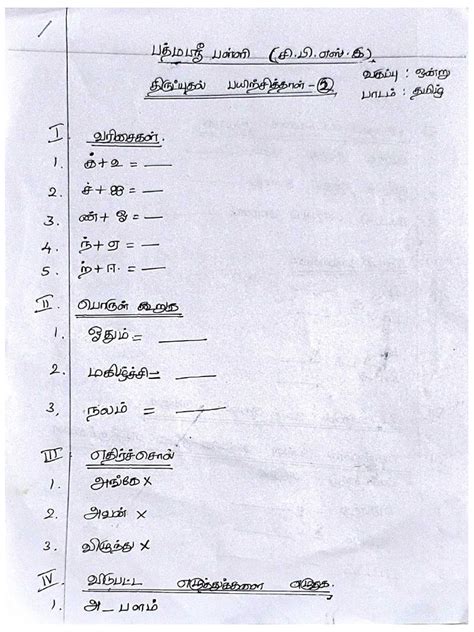 பத்மஸ்ரீ பள்ளி (சி.பி.எஸ்.இ)
வகுப்பு : ஒன்று
திருப்புதல் பயிற்சித்தாள் - 2
பாடம் : தமிழ்
I வரிசைகள்.
1. க்+உ = —
2. ச்+ஐ = —
3. ண்+ஓ = —
4. ந்+ஏ = —
5. ற்+ஈ = —
II. பொருள் கூறுக
1. ஓதும் = —
2. மகிழ்ச்சி = —
3, நலம் = —
III எதிர்ச்சொல்
1. அங்கே X
2. அவன் X
3. விழுந்து X
IV விடுபட்ட எழுத்துக்களை எழுதுக.
1. அ_ பளம்